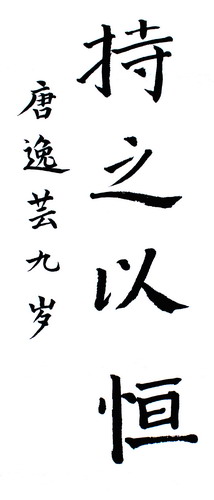 持之以恒
唐逸芸九岁